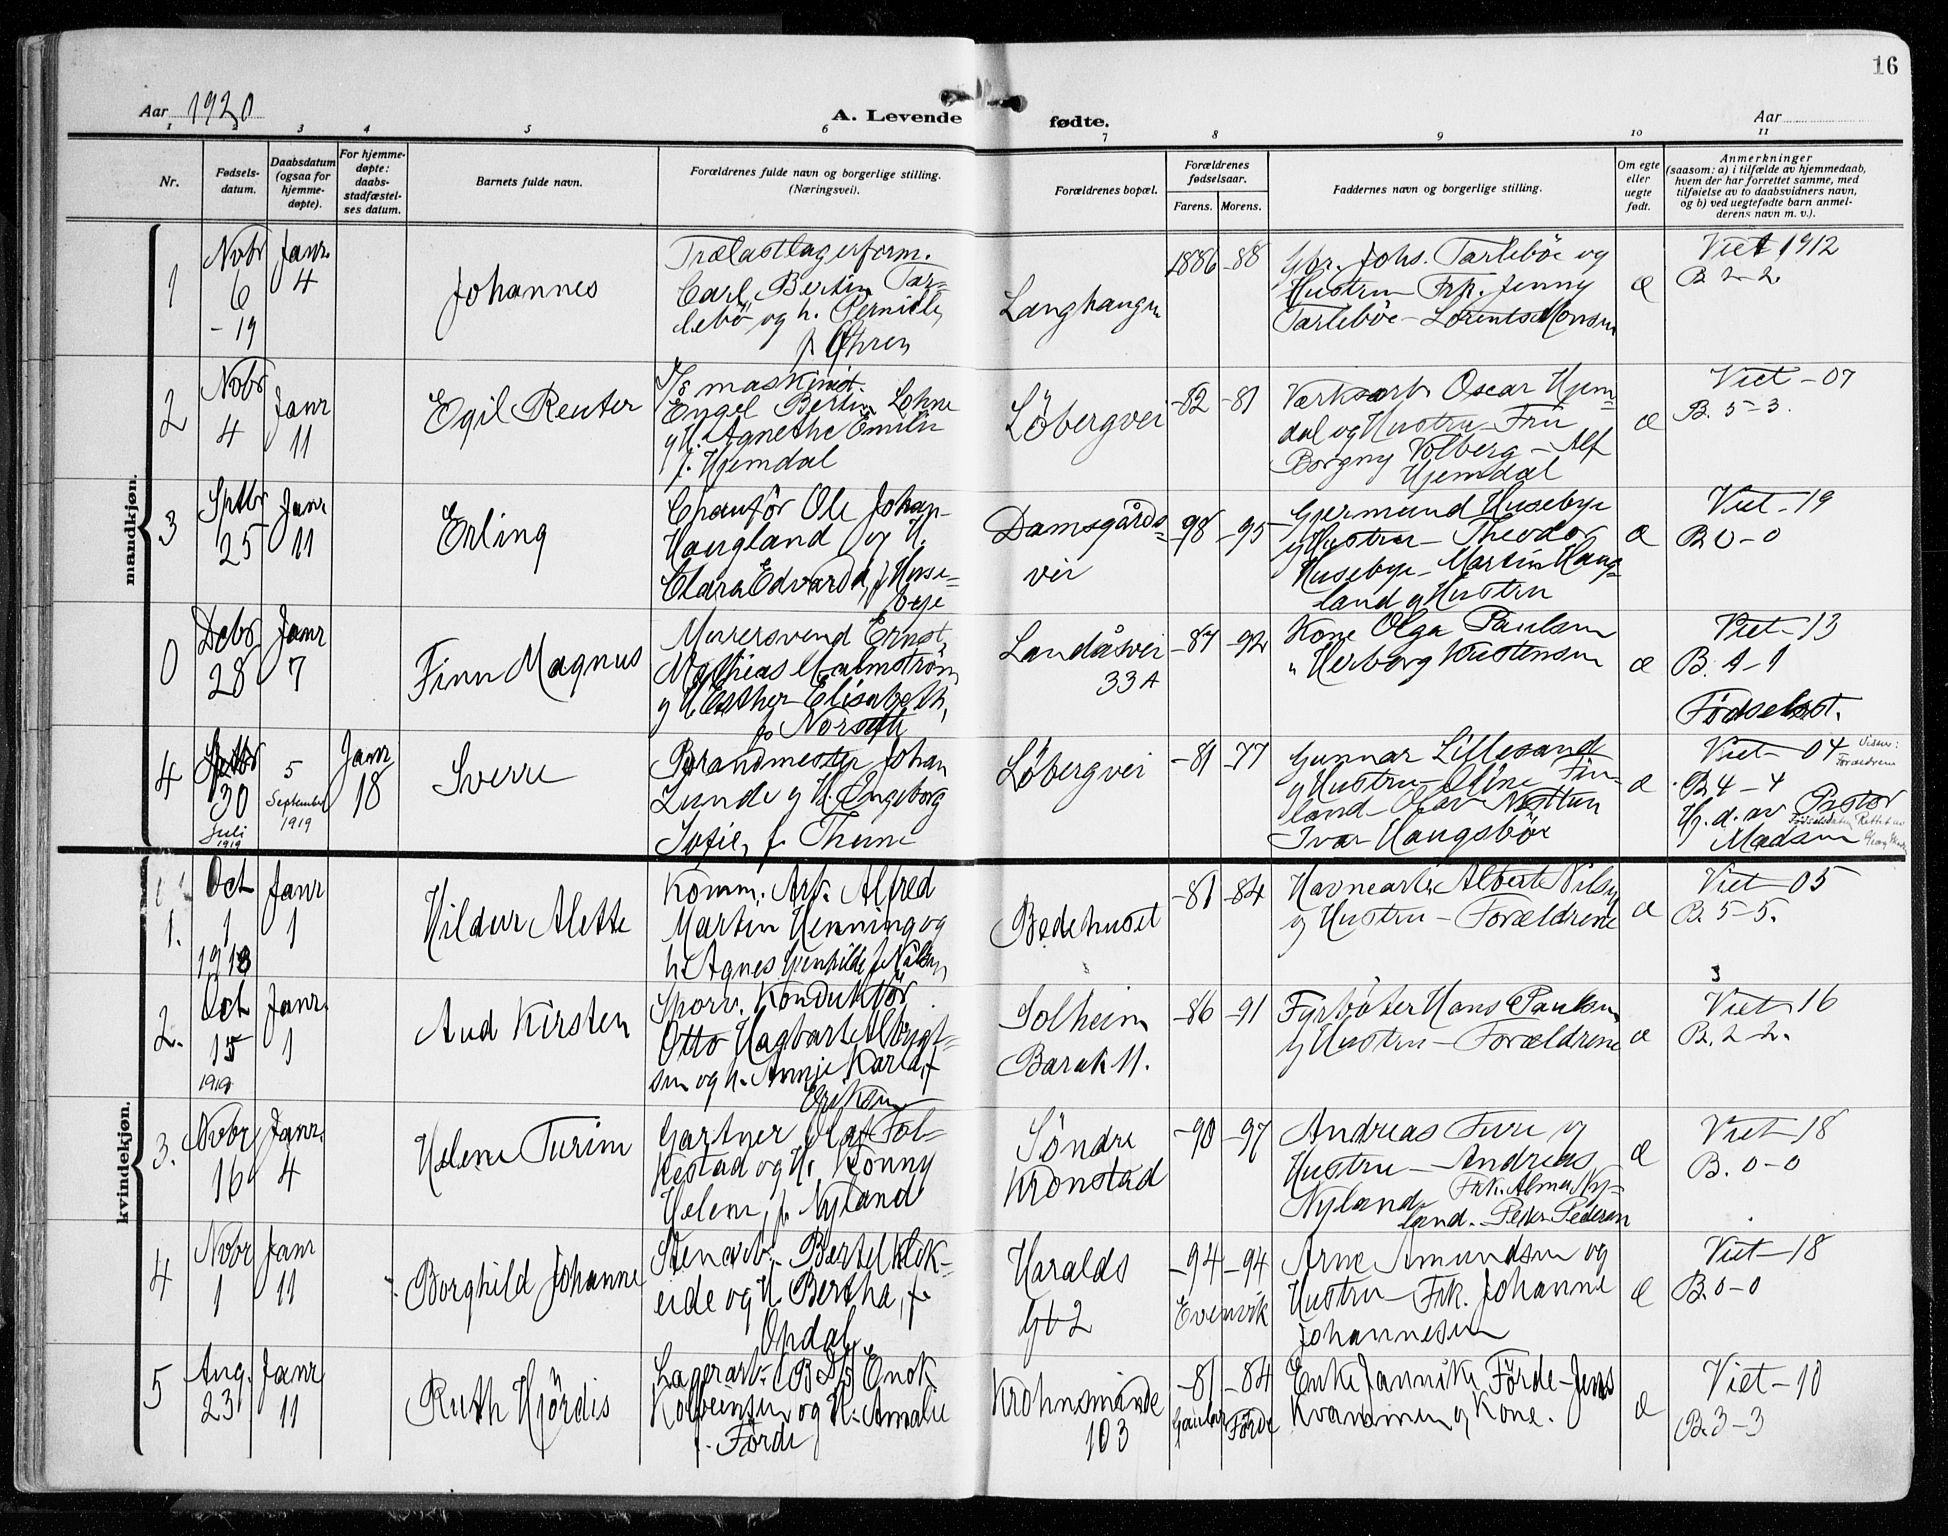 16
Aar 1920
A. Levende fødte.
Aar
1 2 3 4 5 6 7 8 9 10 11
Nr.
Fødsels-
datum.
Daabsdatum
(ogsaa for
hjemme-
døpte).
For hjemme-
døpte:
daabs-
stadfæstel-
ses datum.
Barnets fulde navn.
Forældrenes fulde navn og borgerlige stilling.
(Næringsvei).
Forældrenes bopæl.
Forældrenes
fødselsaar.
Farens. Morens.
Faddernes navn og borgerlige stilling.
Om egte
eller
uegte
født.
Anmerkninger
(saasom: a) i tilfælde av hjemmedaab,
hvem der har forrettet samme, med
tilføielse av to daabsvidners navn,
og b) ved uegtefødte barn anmel-
derens navn m. v.).
mandkjøn.
1
Novbr
6
-19
Janr.
4
Johannes
Trælastlagerform.
Carl Bertin Tar-
lebö og h.
f. Öhren
Langhaugen
1886 -88
Gbr. Johs. Tarleböe og
Hustru - Frk. Jenny
Tarleböe - Lorents Monsen
æ
Viet 1912
B. 2-2.
2
Novbr
4
Janr
11
Egil Reuter
maskinist.
Engel Bertin Lohne
og H. Agnethe Emilie
f. Hjemdal
Löbergvei
-82 -81
Værksarb. Oscar Hjem-
dal og Hustru - Fru
Borgny Volberg - Alf
Hjemdal
æ
Viet - 07
B. 5-3.
3
Septbr
25
Janr
11
Erling
Chauför Ole Johan
Haugland og H.
Clara Edvarda, f. Huse-
bye
Damsgårds-
vei
-98 -95
Gjermund Husebye
og Hustru - Theodor
Husebye - Martin Haug-
land og Hustru
æ
Viet - 19
B. 0-0
0
Decbr
28
Janr
7
Finn Magnus
Murersvend Ernst
Mathias Malmström
og H. Esther Elisabeth,
f. Norseth
Landåsvei
33A
-87 -92
Kone Olga Paulsen
" Herborg Kristensen
æ
Viet - 13
B. 1-1
Födselsat.
4
Septbr
30
Juli
1919
5
September
1919
Janr
18
Sverre
Brandmester Johan
Lunde og H. Engeborg
Sofie, f. Thime
Löbergvei
-81 -77
Gunnar Lillesand
og Hustru - Aline Fin-
land - Olav Nesttun
Ivar Haugsböe
æ
Viet - 04
B 4-4
Hj. d. av Pastor
Madsen
kvindekjøn.
1.
Oct
1
1919
Janr
1
Hildur Alette
Komm. Arb. Alfred
Martin Henning og
h. Agnes Gunhilde f. Nilsen
Bedehuset
-81 -84
Havnearb. Albert Nilsen
og Hustru - Forældrene
æ
Viet - 05
B. 5-5.
2.
Oct
15
1919
Janr.
1
Aud Kirsten
Sporv. Konduktör
Otto Hagbart Albregt-
sen og h. Annie Karla, f.
Eriksen
Solheim
Barak 11.
-86 -91
Fyrböter Hans Paulsen
og Hustru - Forældrene
æ
Viet 16
B. 2-2.
3.
Novbr
16
Janr.
4
Helene Turine
Gartner Olaf Fol-
kestad og H. Konny
Helene, f. Nyland
Söndre
Kronstad
-90 -97
Andreas Ture og
Hustru - Andreas
Nyland Frk. Alma Ny-
land. - Peder Pedersen
æ
Viet - 18
B. 0-0
4
Novbr
1
Janr
11
Borghild Johanne
Stenarb. Bertel KleK-
eide og H. Bertha, f.
Opdal
Haralds
Gt 2
-94 -94
Evenvik
Arne Amundsen og
Hustru - Frk. Johanne
Johannesen
æ
Viet - 18
B. 0-0
5
Aug.
23
Janr
11
Ruth Hjördis
Lagerarb. (B.D.S) Enok
Kolbeinsen og H. Amalie
f. Förde
Krohnsminde
103
-81 -84
Gaular Förde
Enke Jannike Förde - Jens
Kvammen og Kone.
æ
Viet - 10
B. 3-3